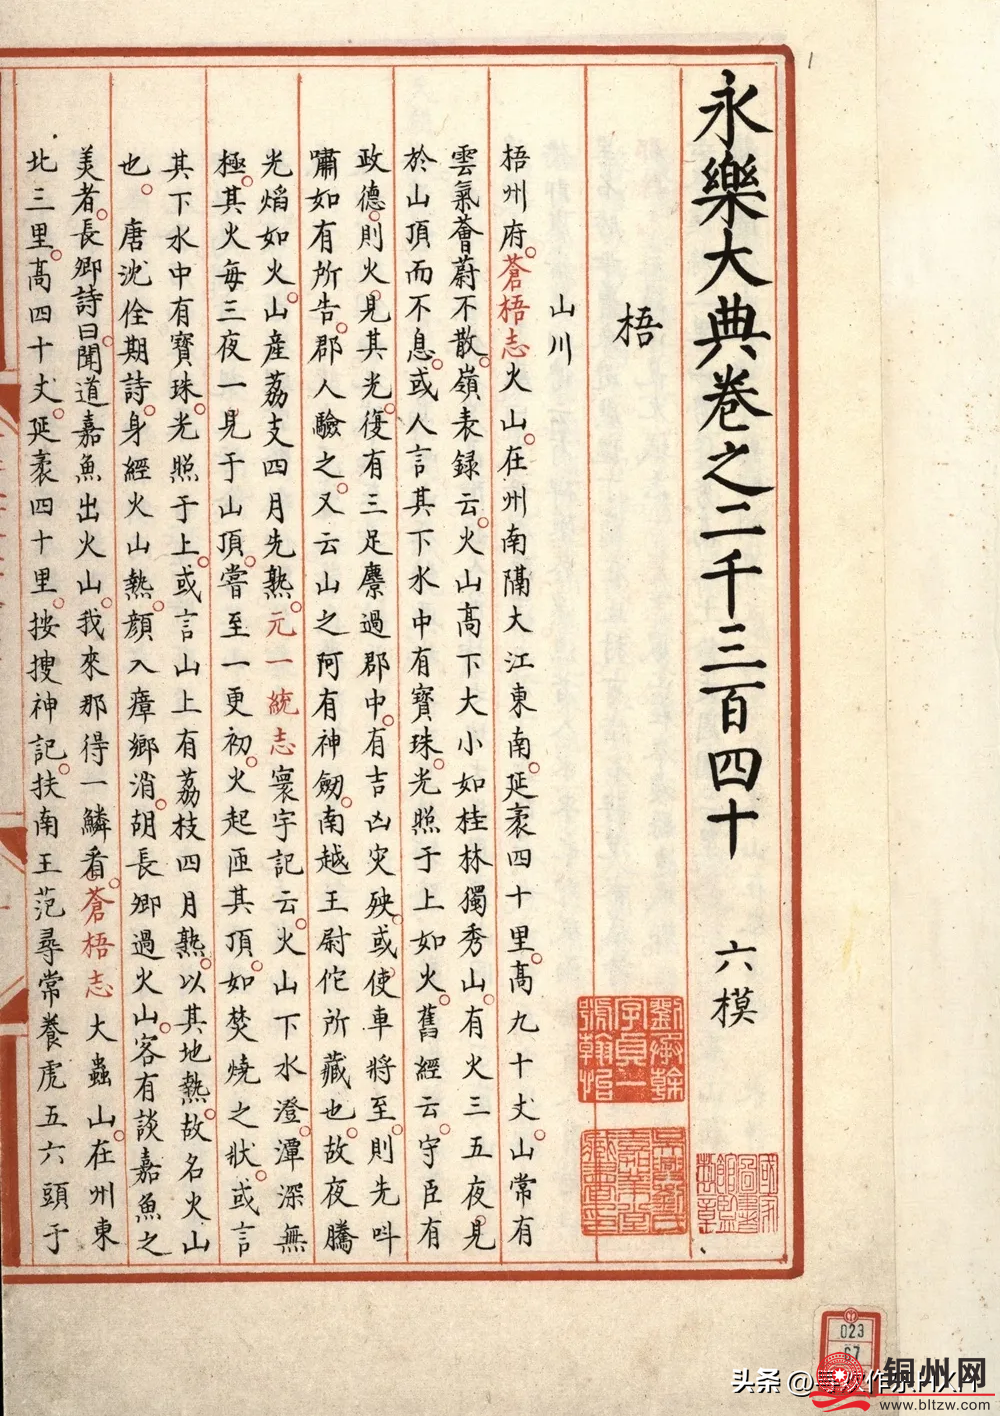 永樂大典卷之二千三百四十 六模
梧
山川
梧州府。蒼梧志火山。在州南隔大江東南。延袤四十里。高九十丈。山常有
雲氣薈蔚不散。嶺表録云。火山高下大小如桂林獨秀山。有火三五夜。見
於山頂而不息。或人言其下水中有寶珠。光照于上如火。舊經云。守臣有
政德。則火見其光。復有三足麐過郡中。有吉凶灾殃。或使車將至。則先呌
嘯如有所告。郡人驗之。又云山之阿有神劒。南越王尉佗所藏也。故夜騰
光熖如火。山產荔支四月先熟。元一統志寰宇記云。火山下水澄。潭深無
極。其火每三夜一見于山頂。嘗至一更初。火起匝其頂。如焚燒之狀。或言
其下水中有寶珠。光照于上。或言山上有荔枝四月熟。以其地熱。故名火山
也。 唐沈佺期詩。身經火山熱。顔入瘴鄉消。胡長卿過火山。客有談嘉魚之
美者。長卿詩曰。聞道嘉魚出火山。我來那得一鱗看。蒼梧志大蟲山。在州東
北三里。高四十丈。延袤四十里。按搜神記。扶南王范尋常養虎五六頭于
劉承幹字貞一號翰怡
吳興劉氏嘉業堂藏書印
國家圖書館藏
1
023
67
头条
铜州网
www.bltzw.com